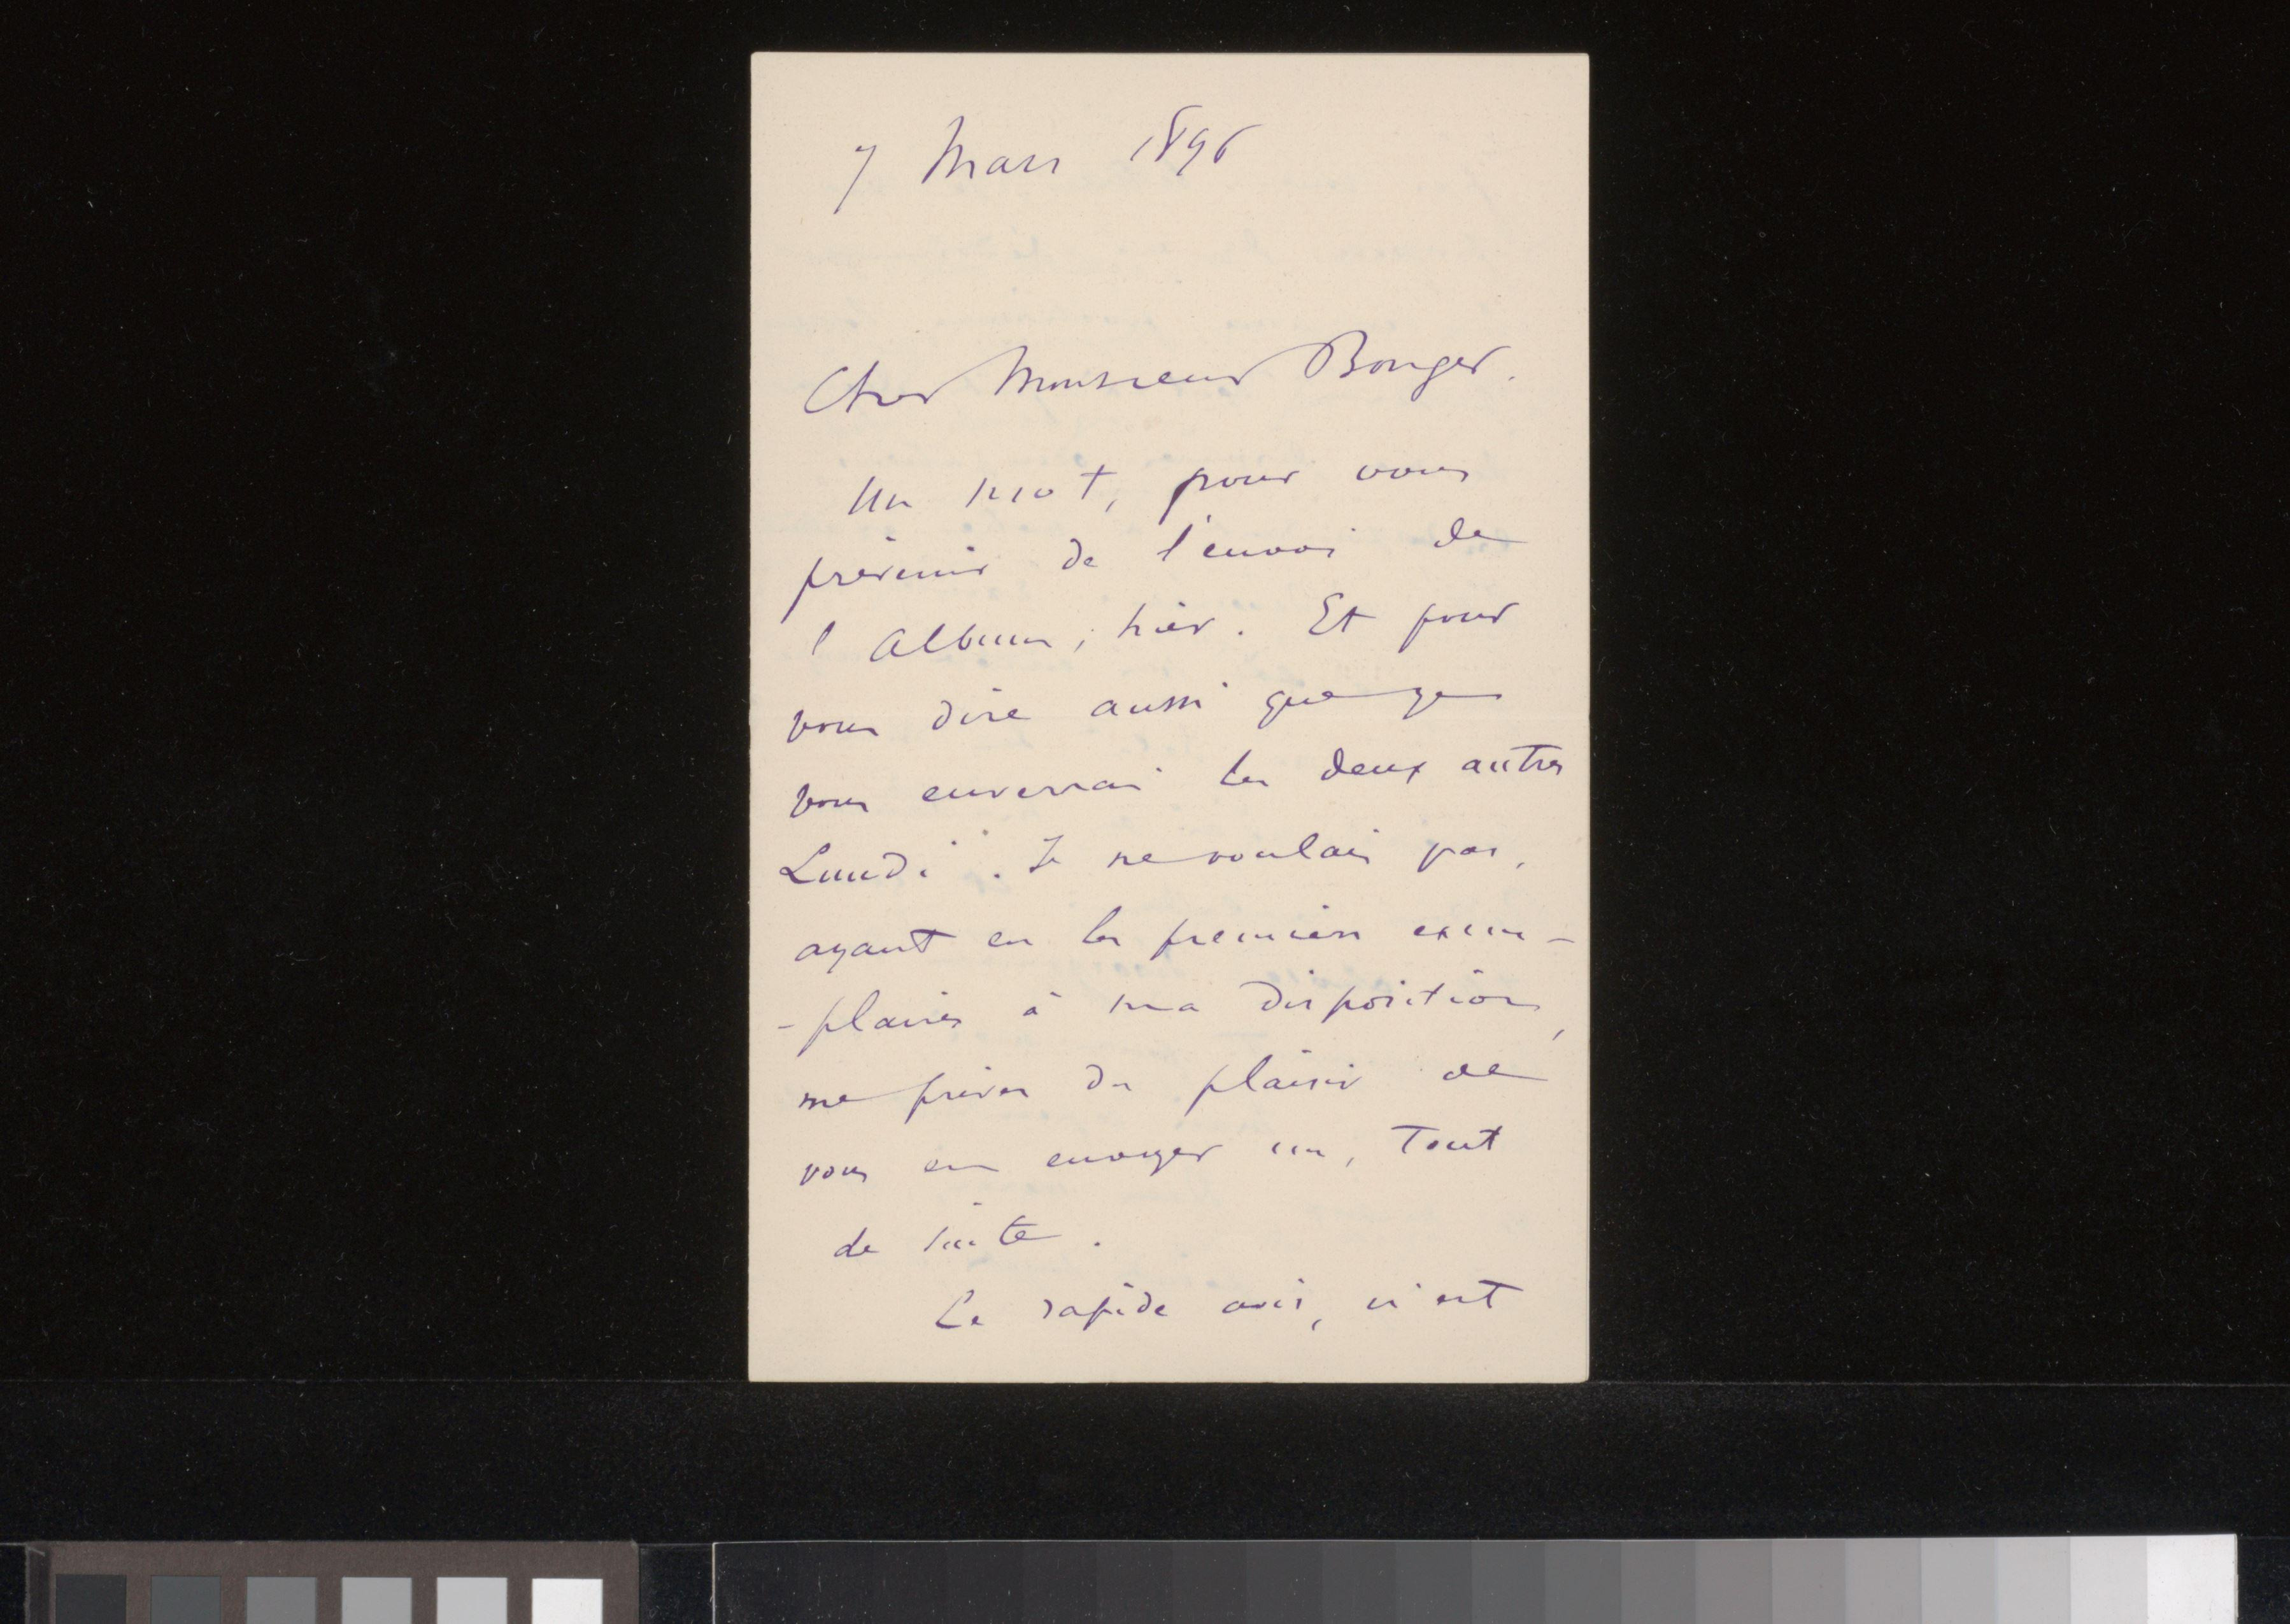 7 Mars 1896
Cher Monsieur Bonger.
Un mot, pour vous
prévenir de l'envoi de
l'Album, hier. Et pour
vous dire aussi que je
vous enverrai les deux autres
Lundi. Je ne voulais pas,
ayant eu les premiers exem-
-plaires à ma disposition,
me priver du plaisir de
vous en envoyer un, Tout
de suite.
Ce rapide avis, n'est